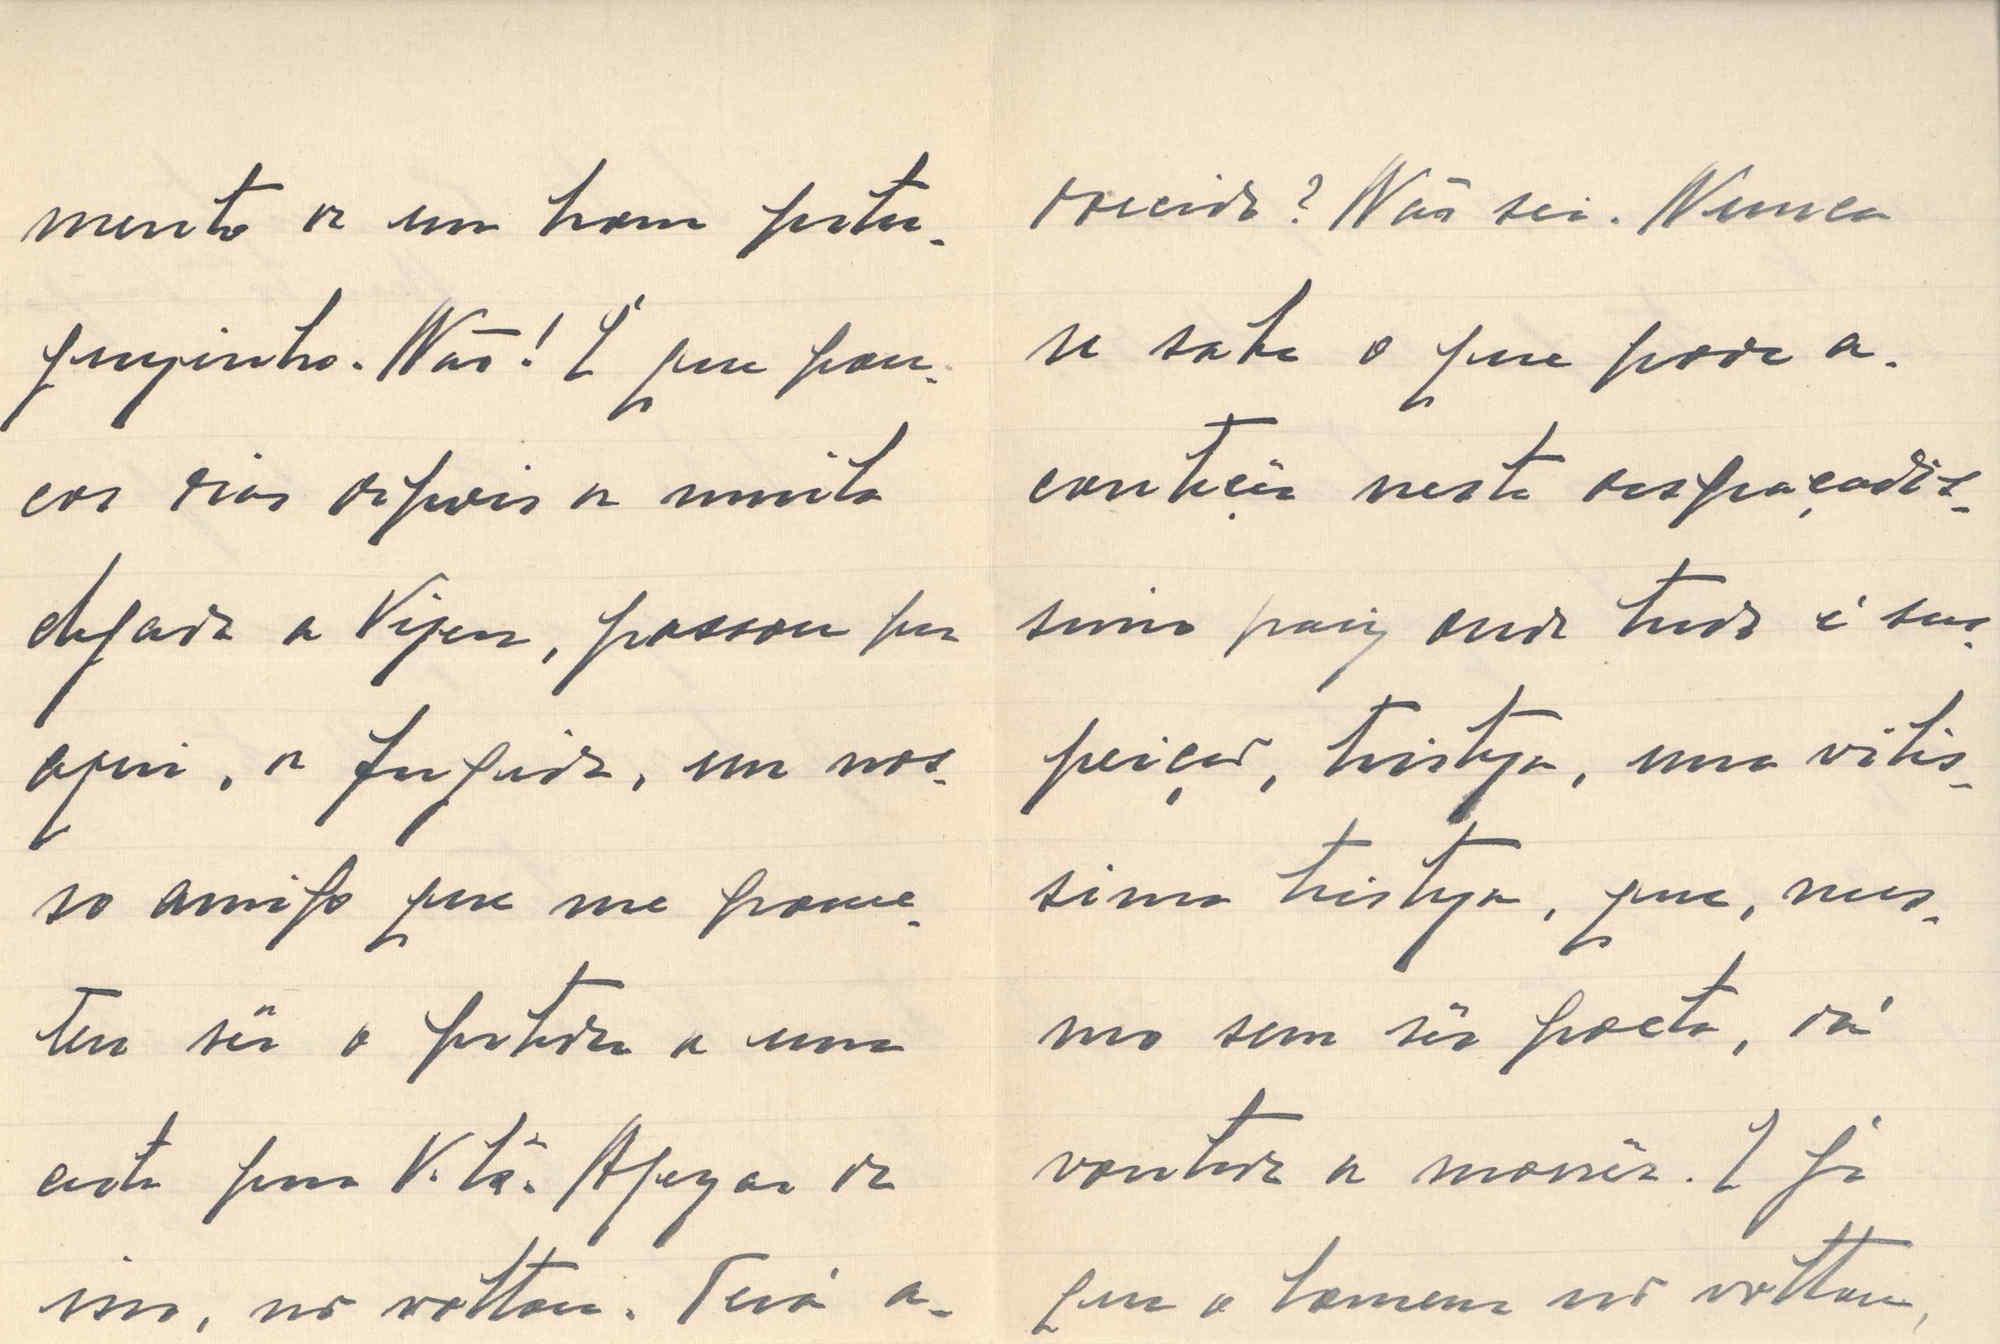 mento de um bom portu-
guezinho. Não! É que pou-
cos dias depois de minita
chegada de Vizeu, passou por
aqui, de fugida, um nos-
so amigo que me prome-
teu sêr o portador de uma
carta para V. lá. Apezar de
isso, não voltou. Terá a-
doecido? Não sei. Nunca
se sabe o que pode a-
contecêr neste desgraçadis-
simo paiz onde tudo é sus-
peição, tristeza, uma vilis-
sima tristeza, que, mes-
mo sem sêr poeta, dá
vontade de morrêr. E já
que o homem não voltou,